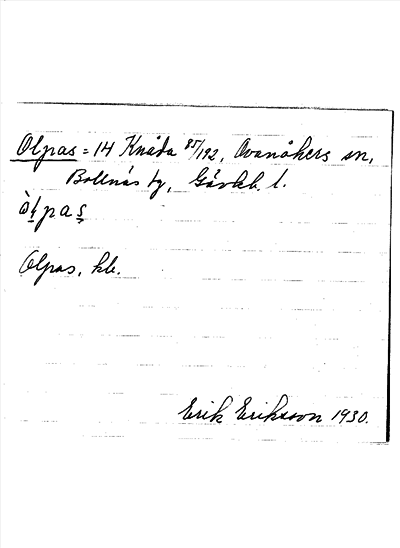 Olpas = 14 Knåda 85/192, Ovanåkers sn,
Bollnäs tg, Gävleb. l.
òlpas
Olpas, hb.
Erik Eriksson 1930.